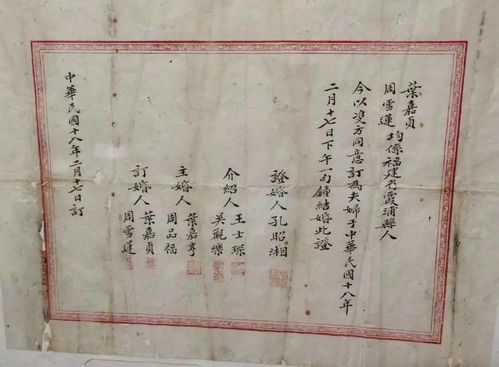 葉嘉貞
周雪蓮 均係福建省霞浦縣人
今以双方同意訂為夫婦于中華民國十八年
二月十七日下午一句鐘結婚此證
證婚人 孔昭湘
介紹人 王士琛
吳觀樂
主婚人 葉嘉亨
周品福
訂婚人 葉嘉貞
周雪蓮
中華民國十八年二月十七日訂